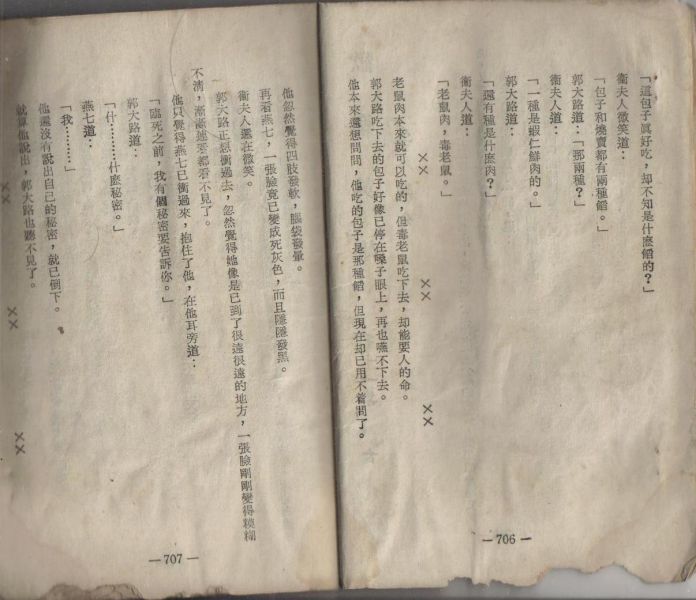 「這包子眞好吃，却不知是什麽餡的？」
衛夫人微笑道：
「包子和燒賣都有兩種餡。」
郭大路道：「那兩種？」
衛夫人道：
「一種是蝦仁鮮肉的。」
郭大路道：
「還有種是什麽肉？」
衛夫人道：
「老鼠肉，毒老鼠。」
×× ×× ××
老鼠肉本來就可以吃的，但毒老鼠吃下去，却能要人的命。
郭大路吃下去的包子好像已停在嗓子眼上，再也嚥不下去。
他本來還想問問，他吃的包子是那種餡，但現在却已用不着問了。
—706—
他忽然覺得四肢發軟，腦袋發暈。
再看燕七，一張臉竟已變成死灰色，而且隱隱發黑。
衛夫人還在微笑。
郭大路正想衝過去，忽然覺得她像是已到了很遠很遠的地方，一張臉剛剛變得糢糊
不淸，漸漸連要都看不見了。
他只覺得燕七已衝過來，抱住了他，在他耳旁道：
「臨死之前，我有個秘密要告訴你。」
郭大路道：
「什………什麽秘密。」
燕七道：
「我………」
他還沒有說出自己的秘密，就已倒下。
就算他說出，郭大路也聽不見了。
×× ×× ××
—707—